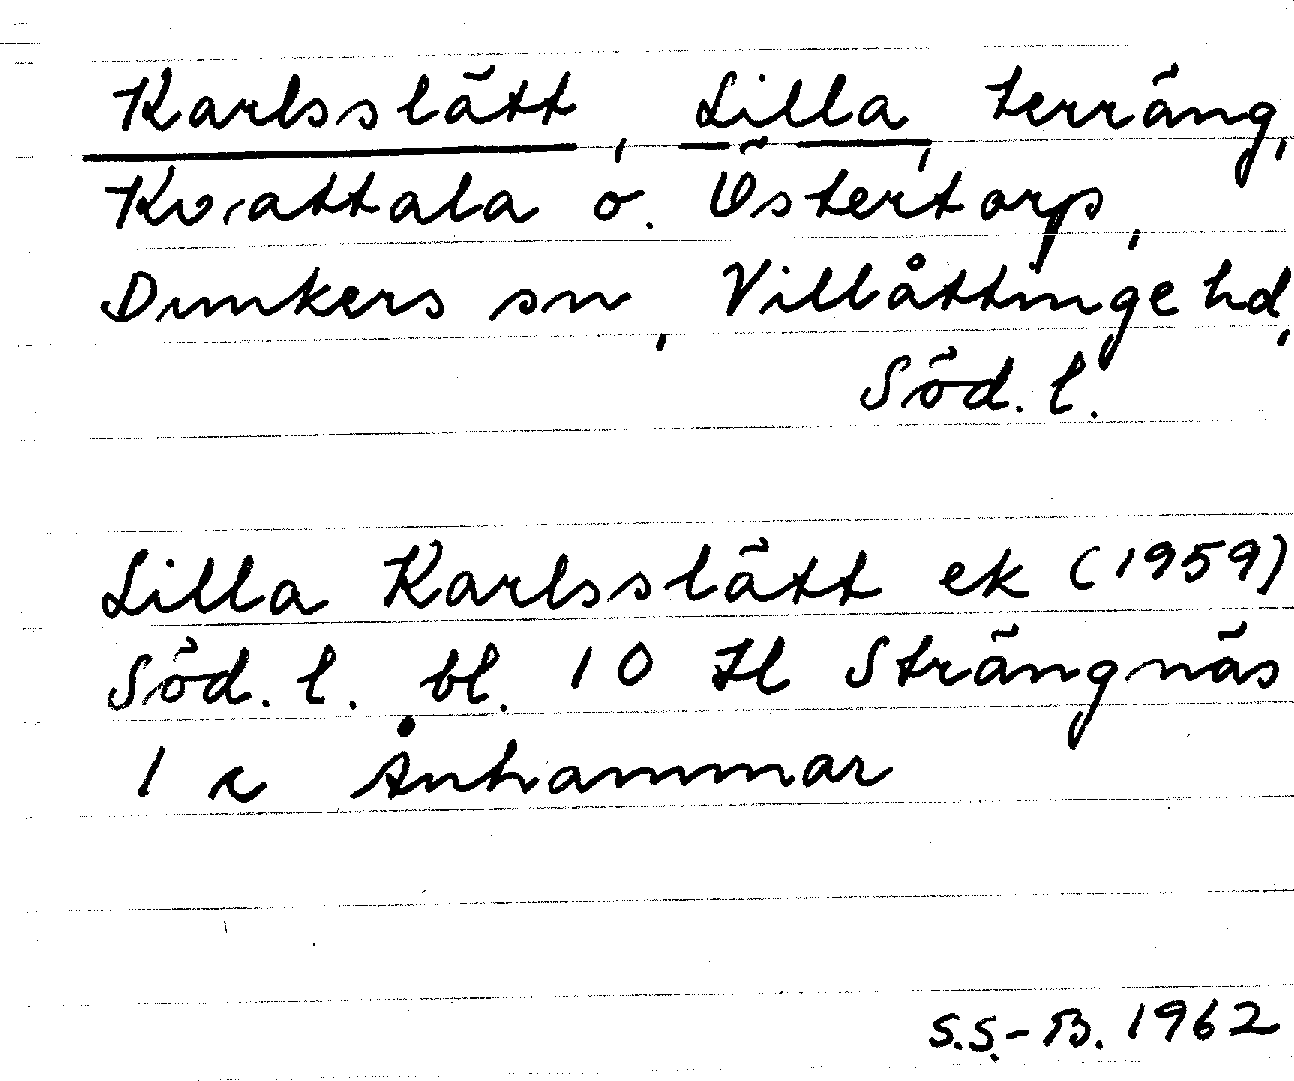 Karlsslätt, Lilla, terräng,
Kvattala o. Östertorp,
Dunkers sn, Villåttinge hd,
Söd. l.
Lilla Karlsslätt ek (1959)
Söd. l. bl. 10 H Strängnäs
1 c Ånhammar
S.S.-B. 1962